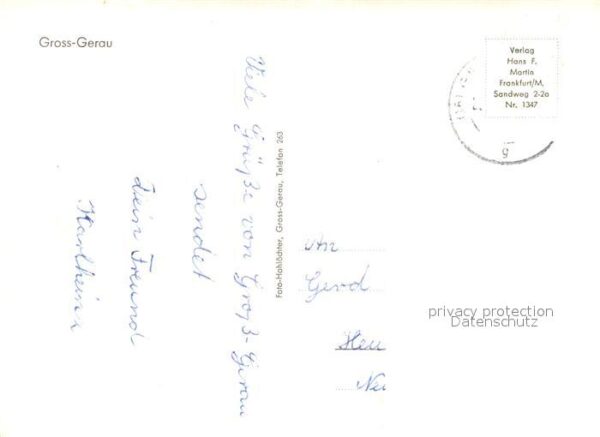 Gross-Gerau
Viele Grüße von Groß-Gerau
sendet
Dein Freund
Karlheinz
Foto-Hohlöchter, Gross-Gerau, Telefon 263
Verlag
Hans F.
Martin
Frankfurt/M.
Sandweg 2-2a
Nr. 1347
An
Gerd
privacy protection
Datenschutz